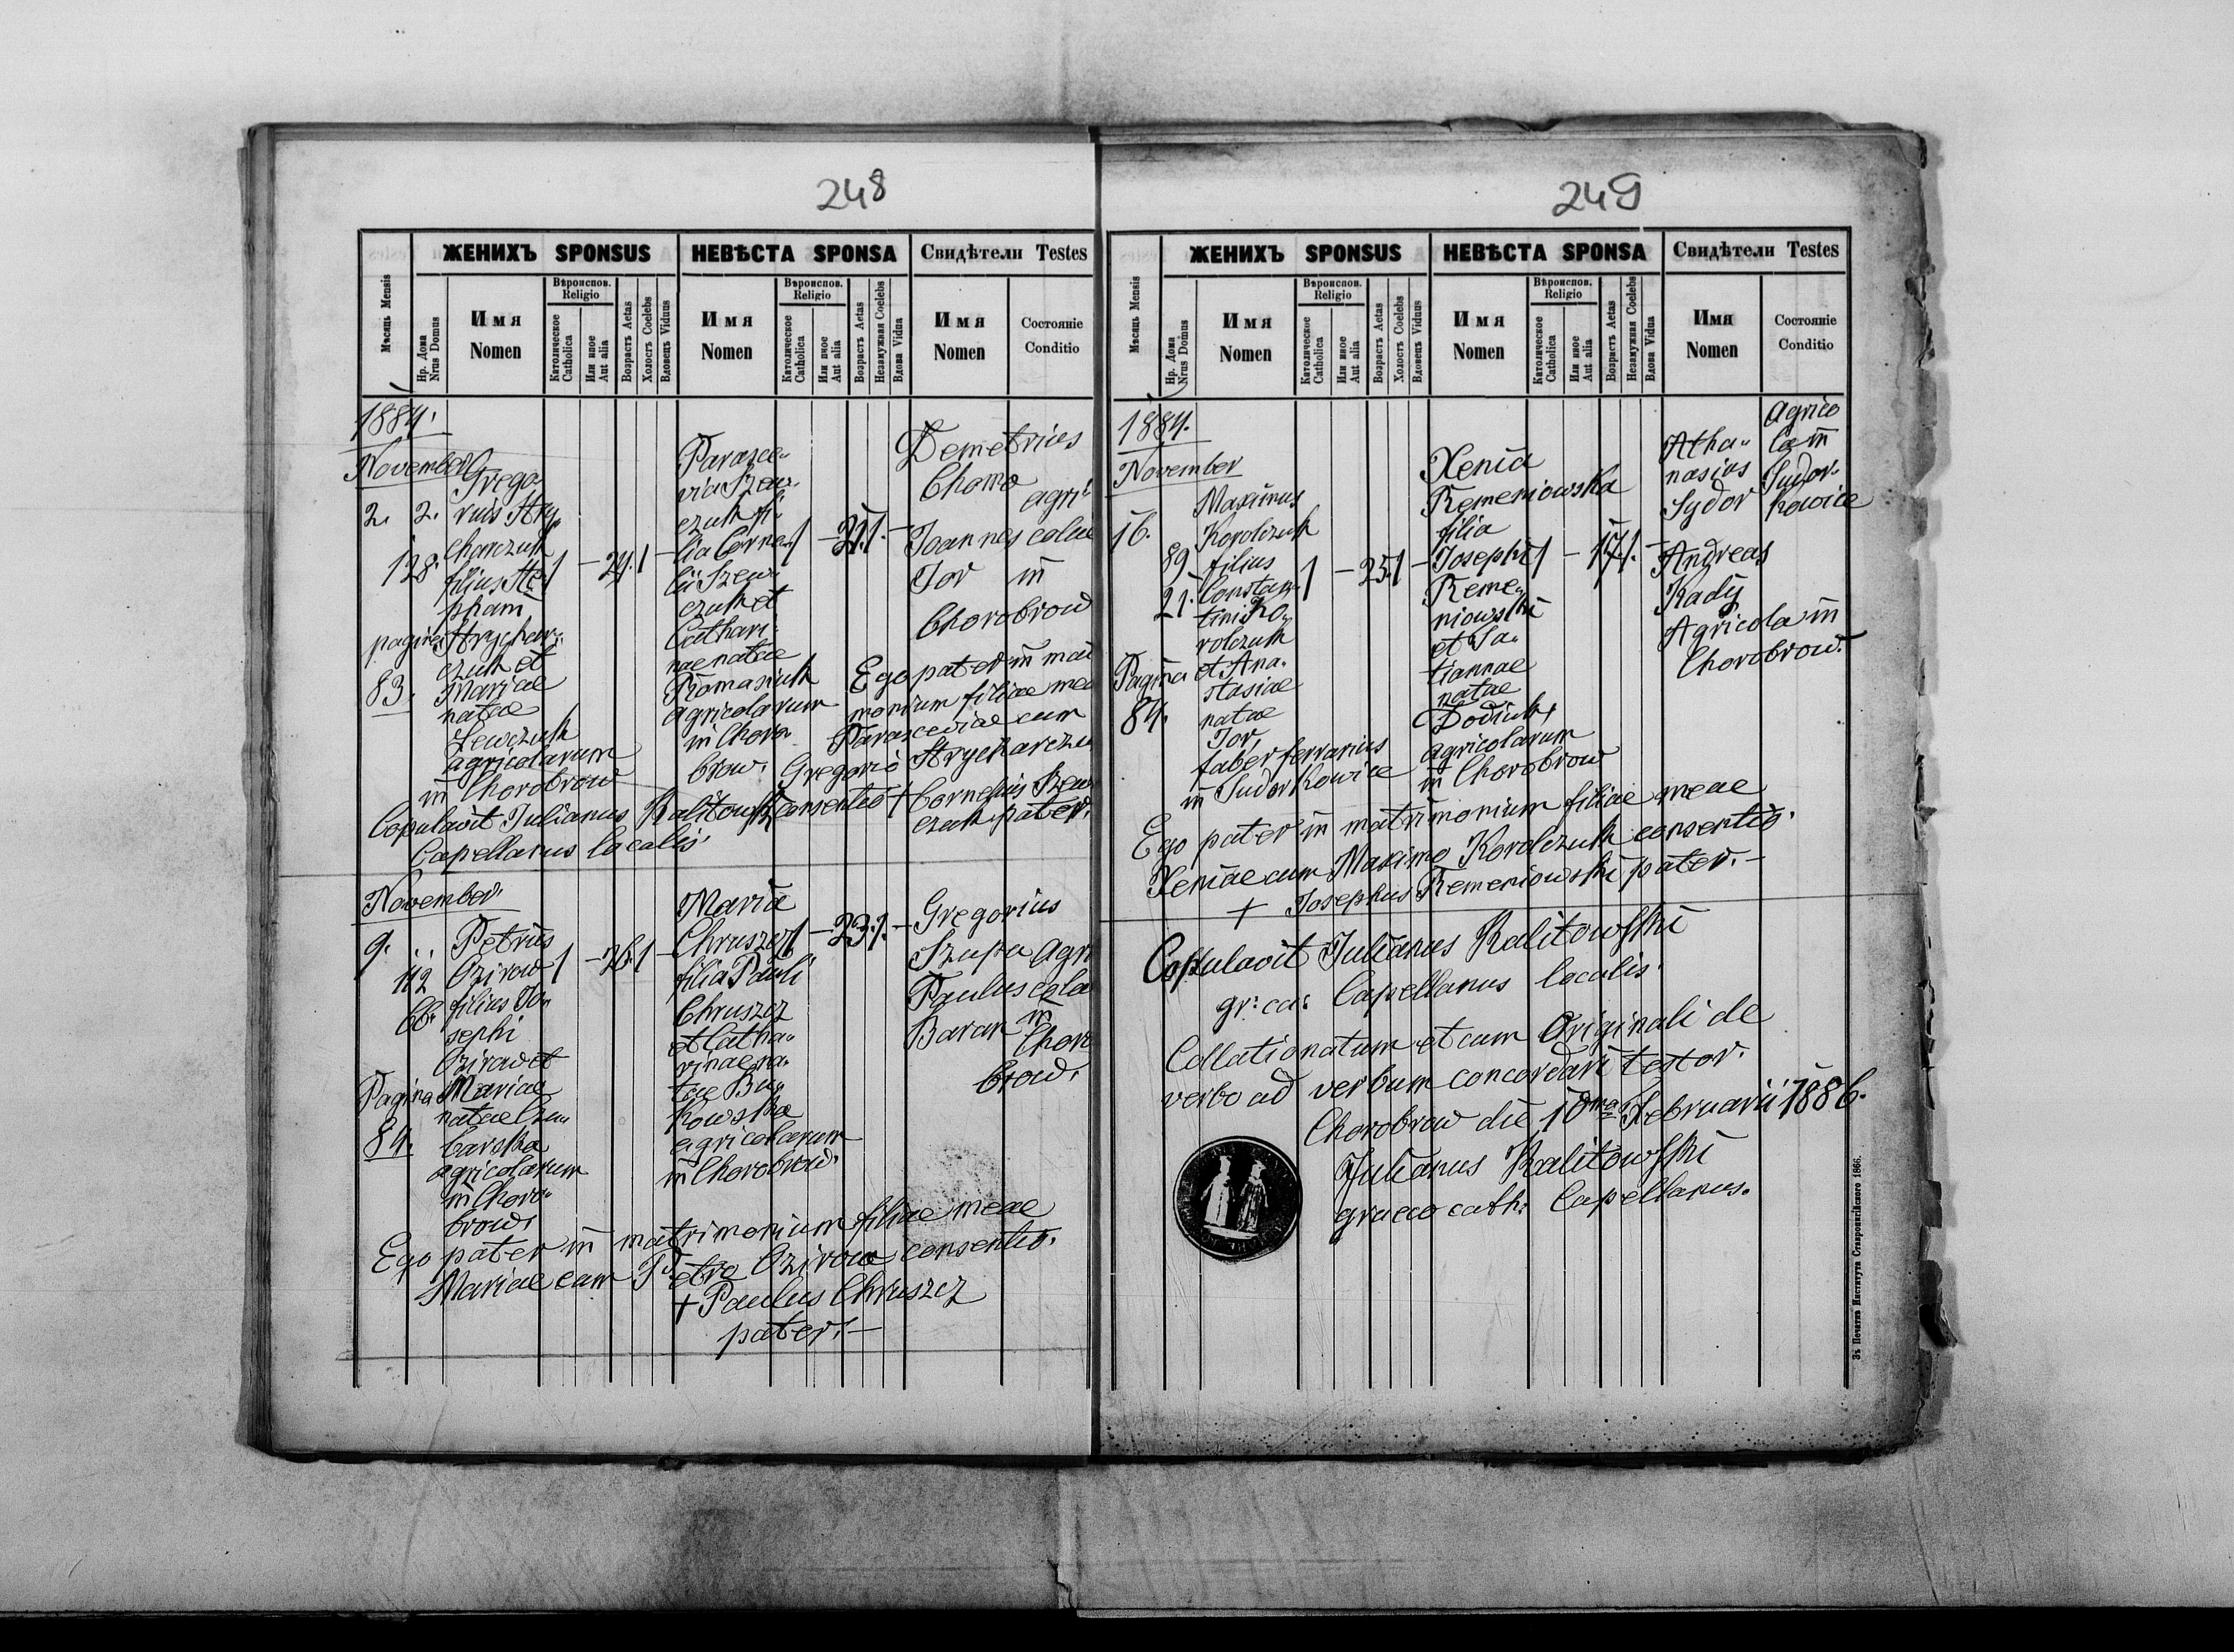 248
ЖЕНИХЪ SPONSUS
НЕВѢСТА SPONSA
Свидѣтели Testes
Мѣсяць Mensis
Нр. Дома Nrus Domus
Имя Nomen
Вѣроиспов. Religio
Католическое Catholica
Или иное Aut alia
Возрастъ Aetas
Холостъ Coelebs
Вдовецъ Viduus
Имя Nomen
Вѣроиспов. Religio
Католическое Catholica
Или иное Aut alia
Возрастъ Aetas
Незамужняя Coelebs
Вдова Vidua
Имя Nomen
Состояніе Conditio
1884.
November
2. 2.
128.
pagina
83.
Grego-
rius Hry-
charczuk
filius Ste-
phani
Hrychar-
czuk et
Mariae
natae
Lewczuk
agricolarum
in Chorobrow
1 - 24. 1 -
Parasce-
via Szew-
czuk fi-
lia Corne-
lii Szew-
czuk et
Cathari-
nae natae
Romaniuk
agricolarum
in Choro-
brow.
1 - 21. 1. -
Demetrius
Chomo
agri-
Joannes colae
Jor in
Chorobrow
Ego pater in mat
monium filiae mea
Parasceviae cum
Gregorio Hrycharczu
consentio + Cornelius Szew
czuk pater.
Copulavit Julianus Kalitowski
Capellanus localis.
November.
9.
112
66.
Pagina
84.
Petrus
Ozirow
filius Jo-
sephi
Ozirow et
Mariae
natae Cze-
barska
agricolarum
in Choro-
brow.
1 - 26. 1 -
Maria
Chruszcz
filia Pauli
Chruszcz
et Catha-
rinae na-
tae Bu-
kowska
agricolarum
in Chorobrow.
1 - 23. 1. -
Gregorius
Szupa Agri
Paulus cola
Baran in
Choro
brow.
Ego pater in matrimonium filiae meae
Mariae cum Petro Ozirow consentio.
+ Paulus Chruszcz
pater. -
249
ЖЕНИХЪ SPONSUS
НЕВѢСТА SPONSA
Свидѣтели Testes
Мѣсяць Mensis
Нр. Дома Nrus Domus
Имя Nomen
Вѣроиспов. Religio
Католическое Catholica
Или иное Aut alia
Возрастъ Aetas
Холостъ Coelebs
Вдовецъ Viduus
Имя Nomen
Вѣроиспов. Religio
Католическое Catholica
Или иное Aut alia
Возрастъ Aetas
Незамужняя Coelebs
Вдова Vidua
Имя Nomen
Состояніе Conditio
1884.
November
16.
89
21.
Pagina
84.
Maximus
Korolczuk
filius
Constan-
tini Ko-
rolczuk
et Ana-
stasiae
natae
Jor,
faber ferrarius
in Sudorkowice
1 - 25. 1 -
Xenia
Remeniowska
filia
Josephi
Reme-
niowski
et Ta-
tiannae
natae
Dodiuk,
agricolarum
in Chorobrow
1 - 17. 1. -
Atha-
nasius
Sydor
Agrico
la in
Sudor-
kowice
Andreas
Kadij
Agricola in
Chorobrow.
Ego pater in matrimonium filiae meae
Xeniae cum Maximo Korolczuk consentio.
+ Josephus Remeniowski pater. -
Copulavit Julianus Kalitowski
gr: ca: Capellanus localis.
Collationatum et cum Originali de
verbo ad verbum concordari testor.
Chorobrow die 10ma Februarii 1886.
Julianus Kalitowski
graeco cath: Capellanus.
Зъ Печатнѣ Института Ставропигійского 1866.